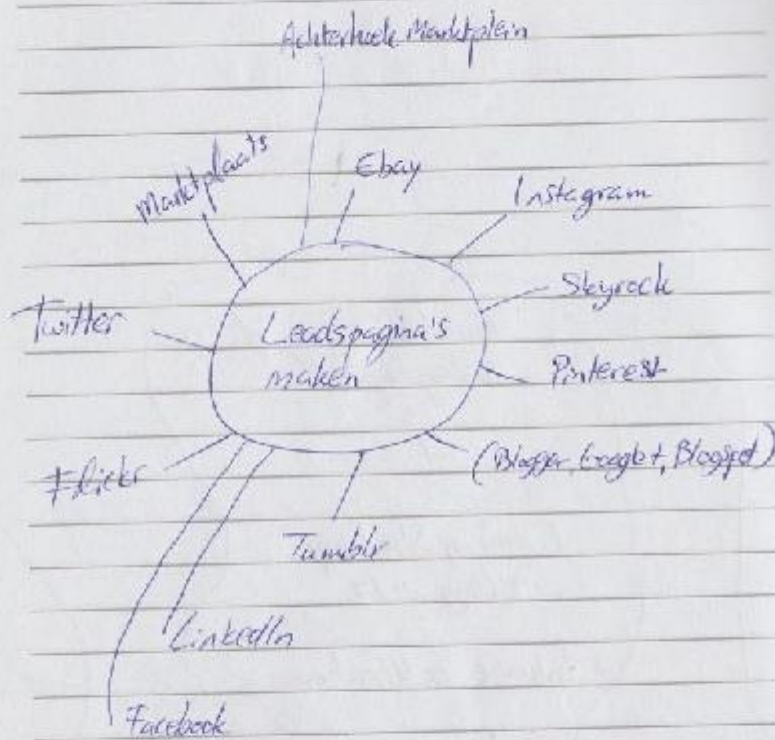 Achterhoek Marktplein
Marktplaats
Ebay
Instagram
Twitter
Leadspagina's
maken
Skyrock
Pinterest
Flickr
(Blogger, Google+, Blogspot)
Tumblr
LinkedIn
Facebook